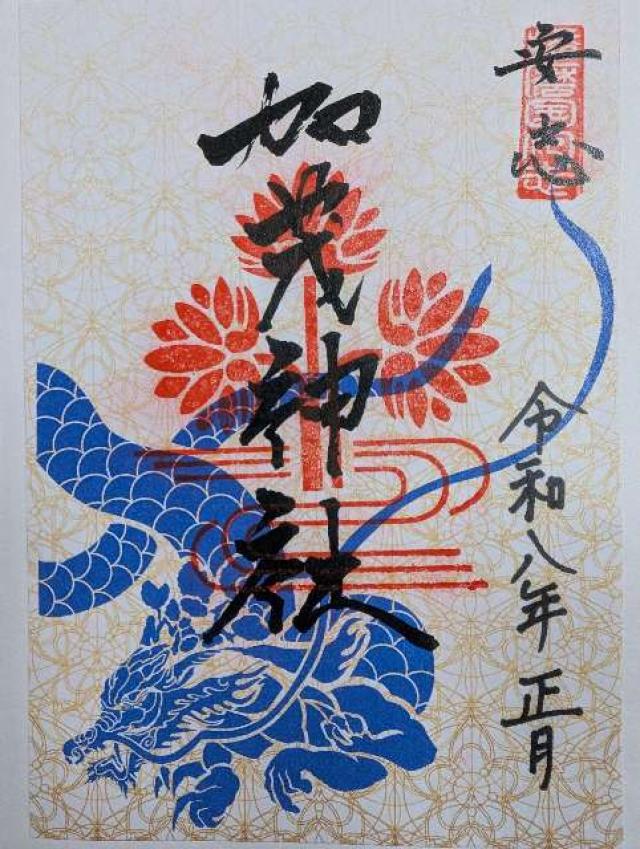 安志
加茂神社
令和八年 正月